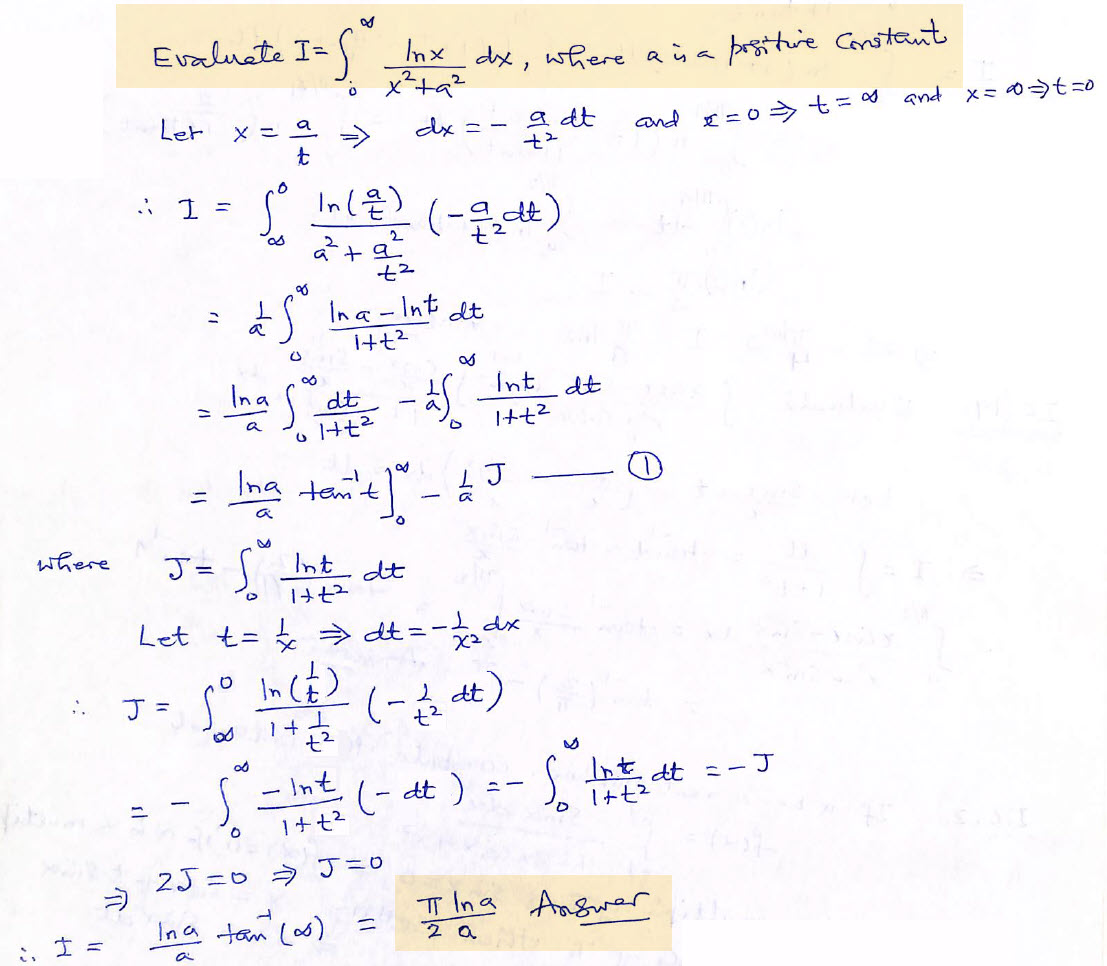 Evaluate I = ∫₀^∞ ln x / (x² + a²) dx, where a is a positive Constant
Let x = a/t ⇒ dx = - a/t² dt and x = 0 ⇒ t = ∞ and x = ∞ ⇒ t = 0
∴ I = ∫_∞^0 ln(a/t) / (a² + a²/t²) (- a/t² dt)
= 1/a ∫₀^∞ (ln a - ln t) / (1+t²) dt
= ln a / a ∫₀^∞ dt / (1+t²) - 1/a ∫₀^∞ ln t / (1+t²) dt
= ln a / a tan⁻¹ t ]₀^∞ - 1/a J —— ①
where J = ∫₀^∞ ln t / (1+t²) dt
Let t = 1/x ⇒ dt = - 1/x² dx
∴ J = ∫_∞^0 ln(1/t) / (1 + 1/t²) (- 1/t² dt)
= - ∫₀^∞ - ln t / (1+t²) (- dt) = - ∫₀^∞ ln t / (1+t²) dt = - J
⇒ 2J = 0 ⇒ J = 0
∴ I = ln a / a tan⁻¹(∞) = π/2 ln a / a Answer